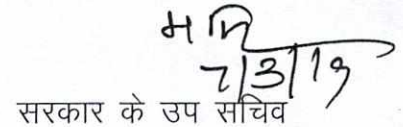 7/3/19
सरकार के उप सचिव